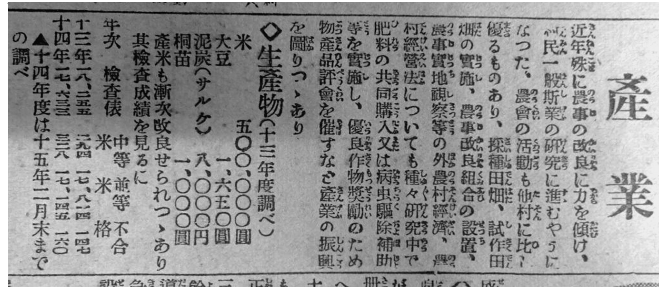 產業
近年殊に農事の改良に力を傾け、
村民一般斯業の研究に進むやうに
なつた。農會の活動も他村に比し
優るものあり、採種田畑、試作田
畑の實施、農事改良組合の設置、
農事實地視察等の外農村經濟、農
村經營法についても種々研究中で
肥料の共同購入又は病虫驅除補助
等を實施し、優良作物奬勵のため
物產品評會を催すなど產業の振興
を圖りつゝあり
◇生產物(十三年度調べ)
米 五〇〇、〇〇〇圓
大豆 一、六五〇圓
泥炭(サルケ) 八、〇〇〇円
桐苗 一、〇〇〇圓
產米も漸次改良せられつゝあり
其檢査成績を見るに
年次 檢査俵 中等米 並等米 不合格
十三年 一八、二五五 二九四 一七、八一四 一四七
十四年 一七、六三三 三二八 一七、一四五 一六〇
▲十四年度は十五年二月末まで
の調べ